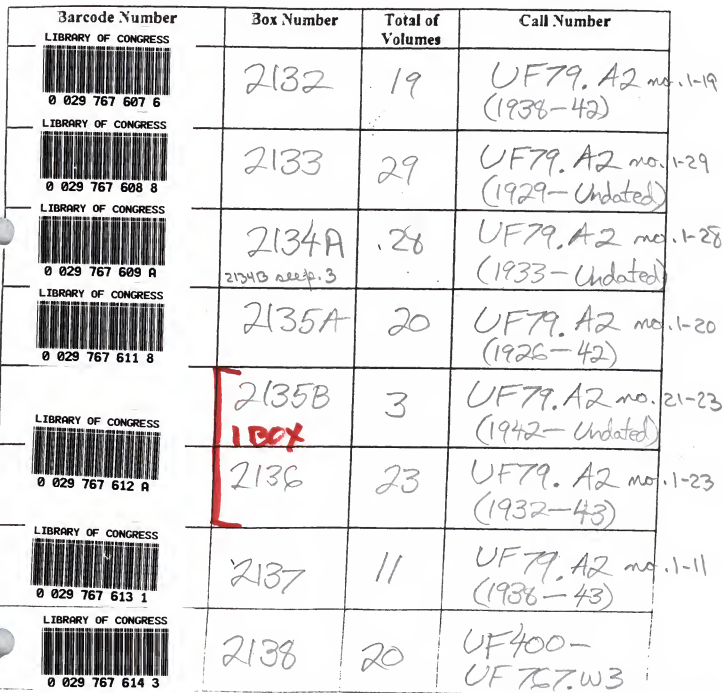 Barcode Number Box Number Total of Volumes Call Number
LIBRARY OF CONGRESS
0 029 767 607 6
2132 19 UF79. A2 no. 1-19
(1938-42)
LIBRARY OF CONGRESS
0 029 767 608 8
2133 29 UF79. A2 no. 1-29
(1929- Undated)
LIBRARY OF CONGRESS
0 029 767 609 A
2134A .28 UF79. A2 no. 1-28
2134B see p. 3 (1933- Undated)
LIBRARY OF CONGRESS
0 029 767 611 8
2135A 20 UF79. A2 no. 1-20
(1926-42)
2135B 3 UF79. A2 no. 21-23
1 BOX (1942- Undated)
LIBRARY OF CONGRESS
0 029 767 612 A
2136 23 UF79. A2 no. 1-23
(1932-43)
LIBRARY OF CONGRESS
0 029 767 613 1
2137 11 UF79. A2 no. 1-11
(1938-43)
LIBRARY OF CONGRESS
0 029 767 614 3
2138 20 UF400-
UF767.W3